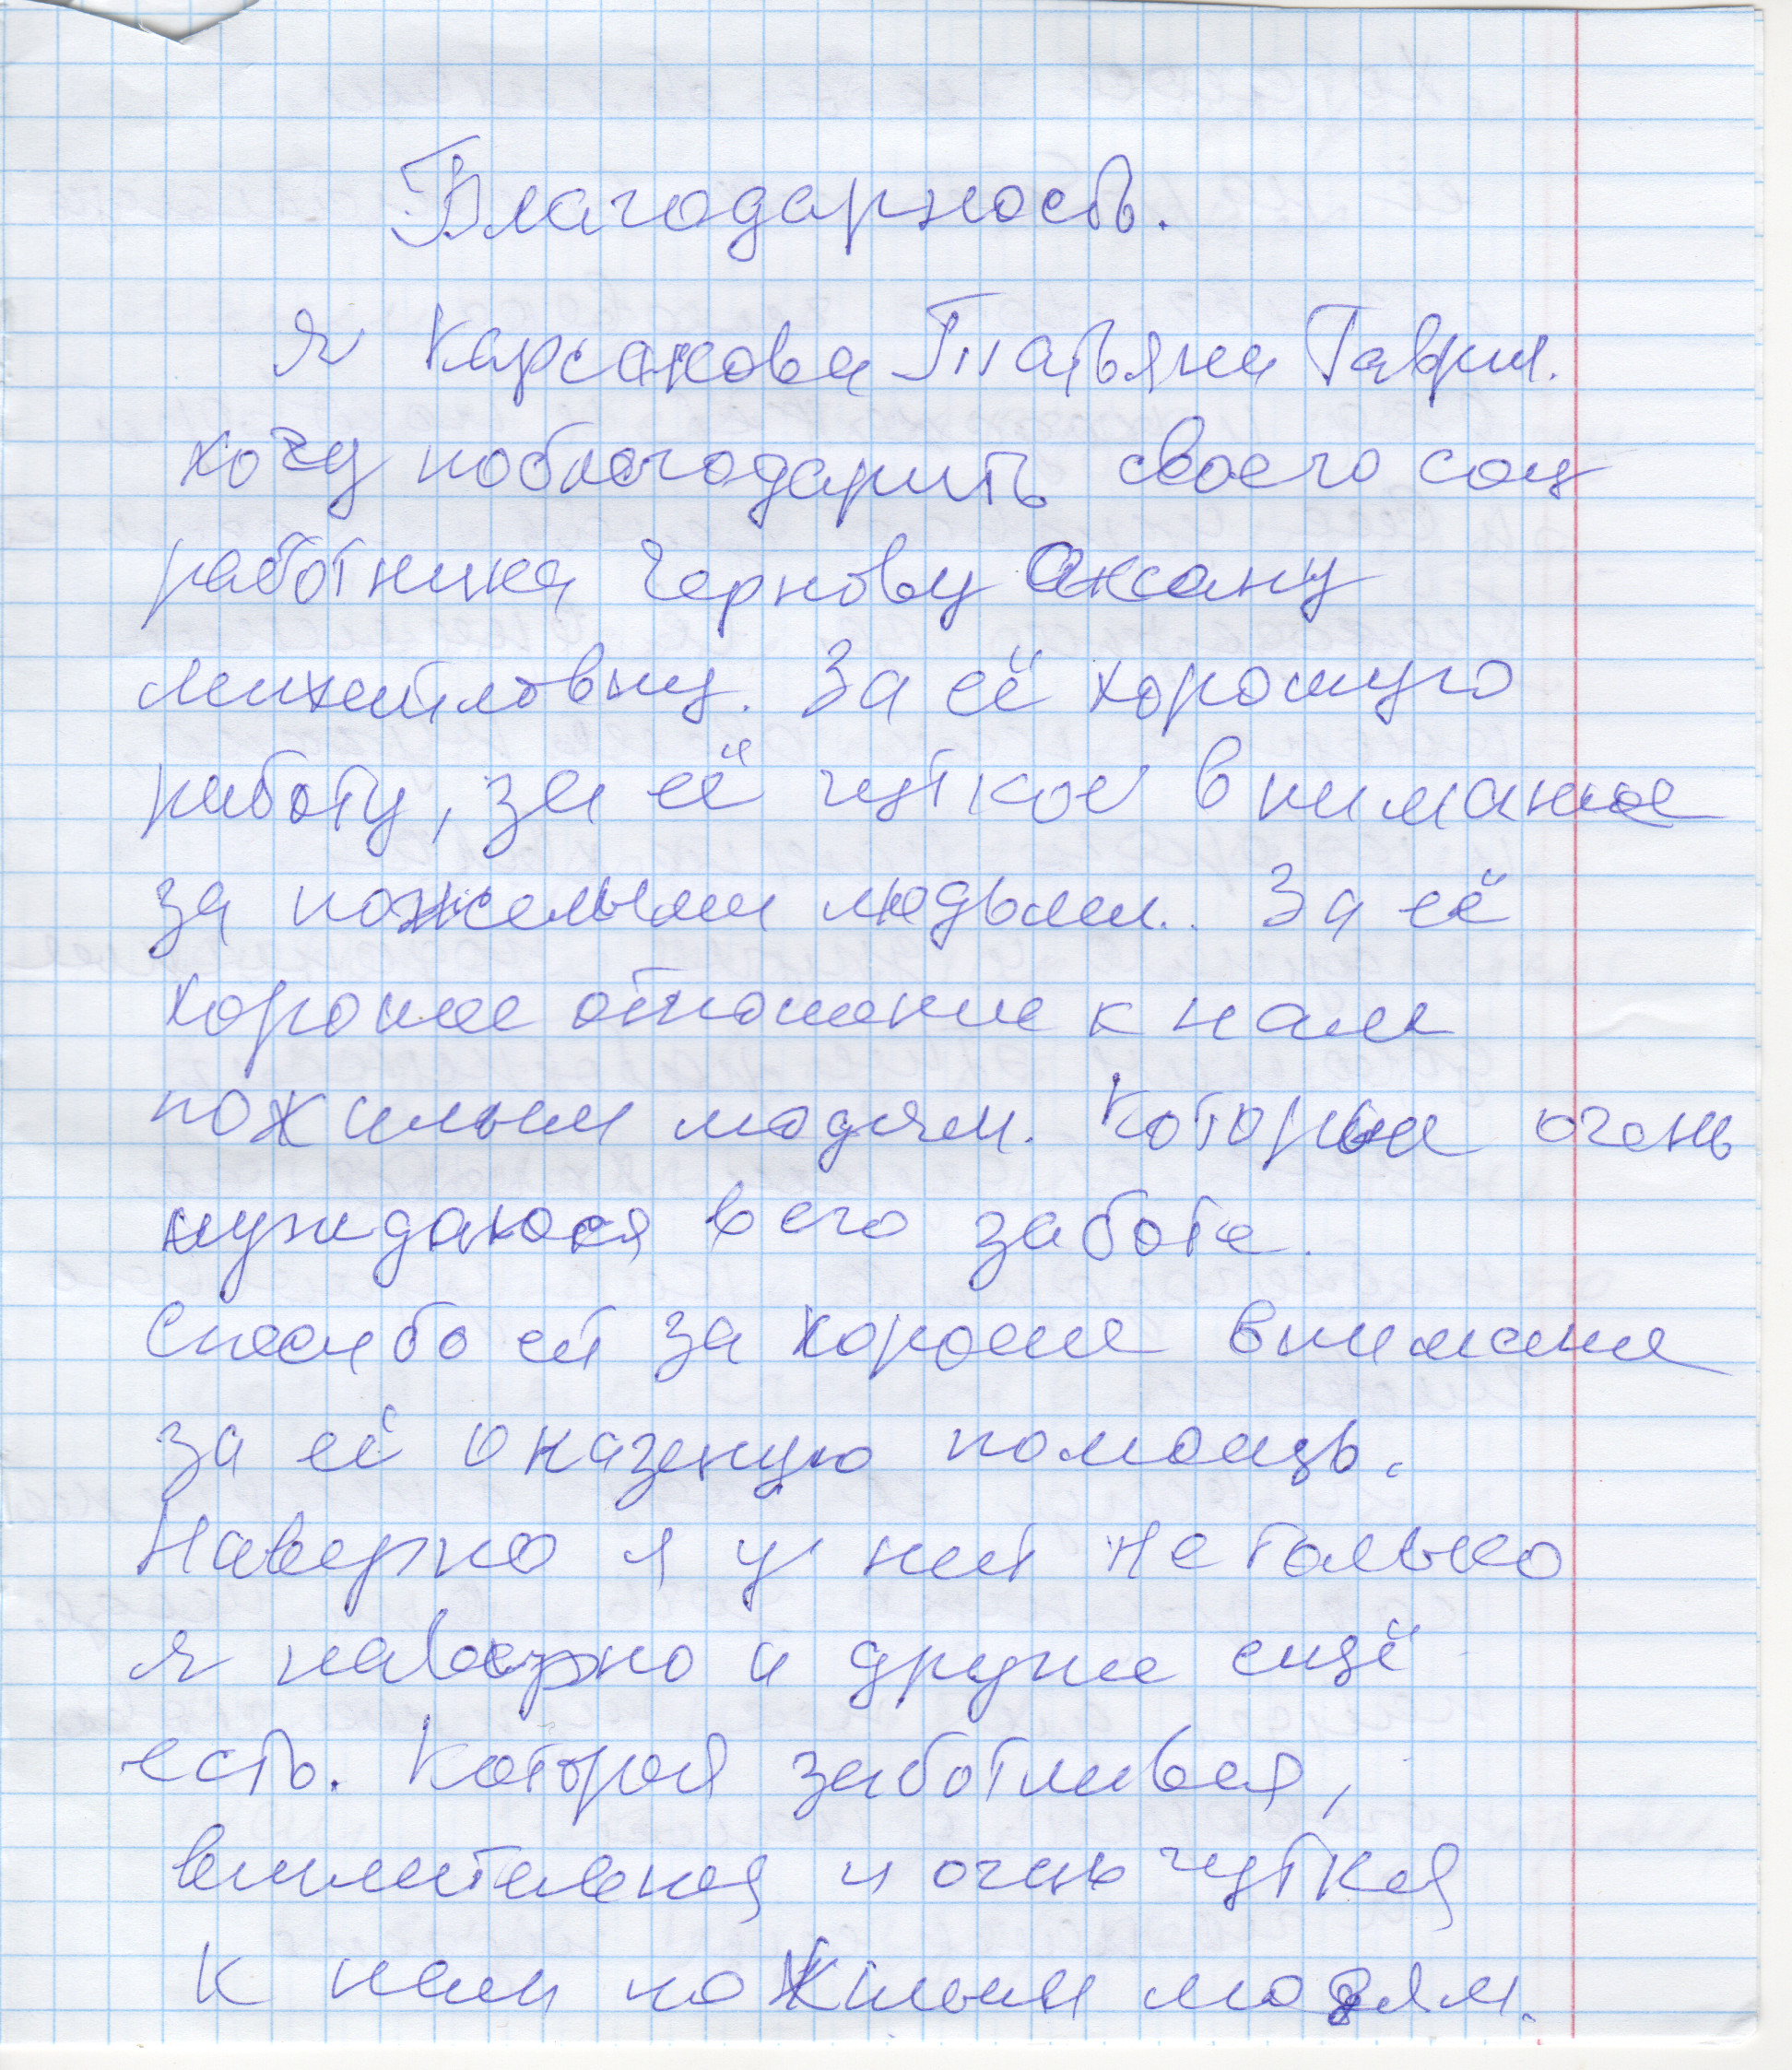 Благодарность.
Я Карсакова Татьяна Гаврил.
хочу поблогодарить своего соц
работника Чернову Оксану
Михайловну. За её хорошую
работу, за её чуткое внимание
за пожелыми людьми. За её
хорошее отношение к нам
пожилым людям. Которые очень
нуждаюся в его заботе.
Спасибо ей за хорошее внимание
за её оказеную помощь.
Наверно я у ней не только
я наверно и другие ещё
есть. Которая заботливая,
внимательная и очень чуткая
к нам пожилым людям.